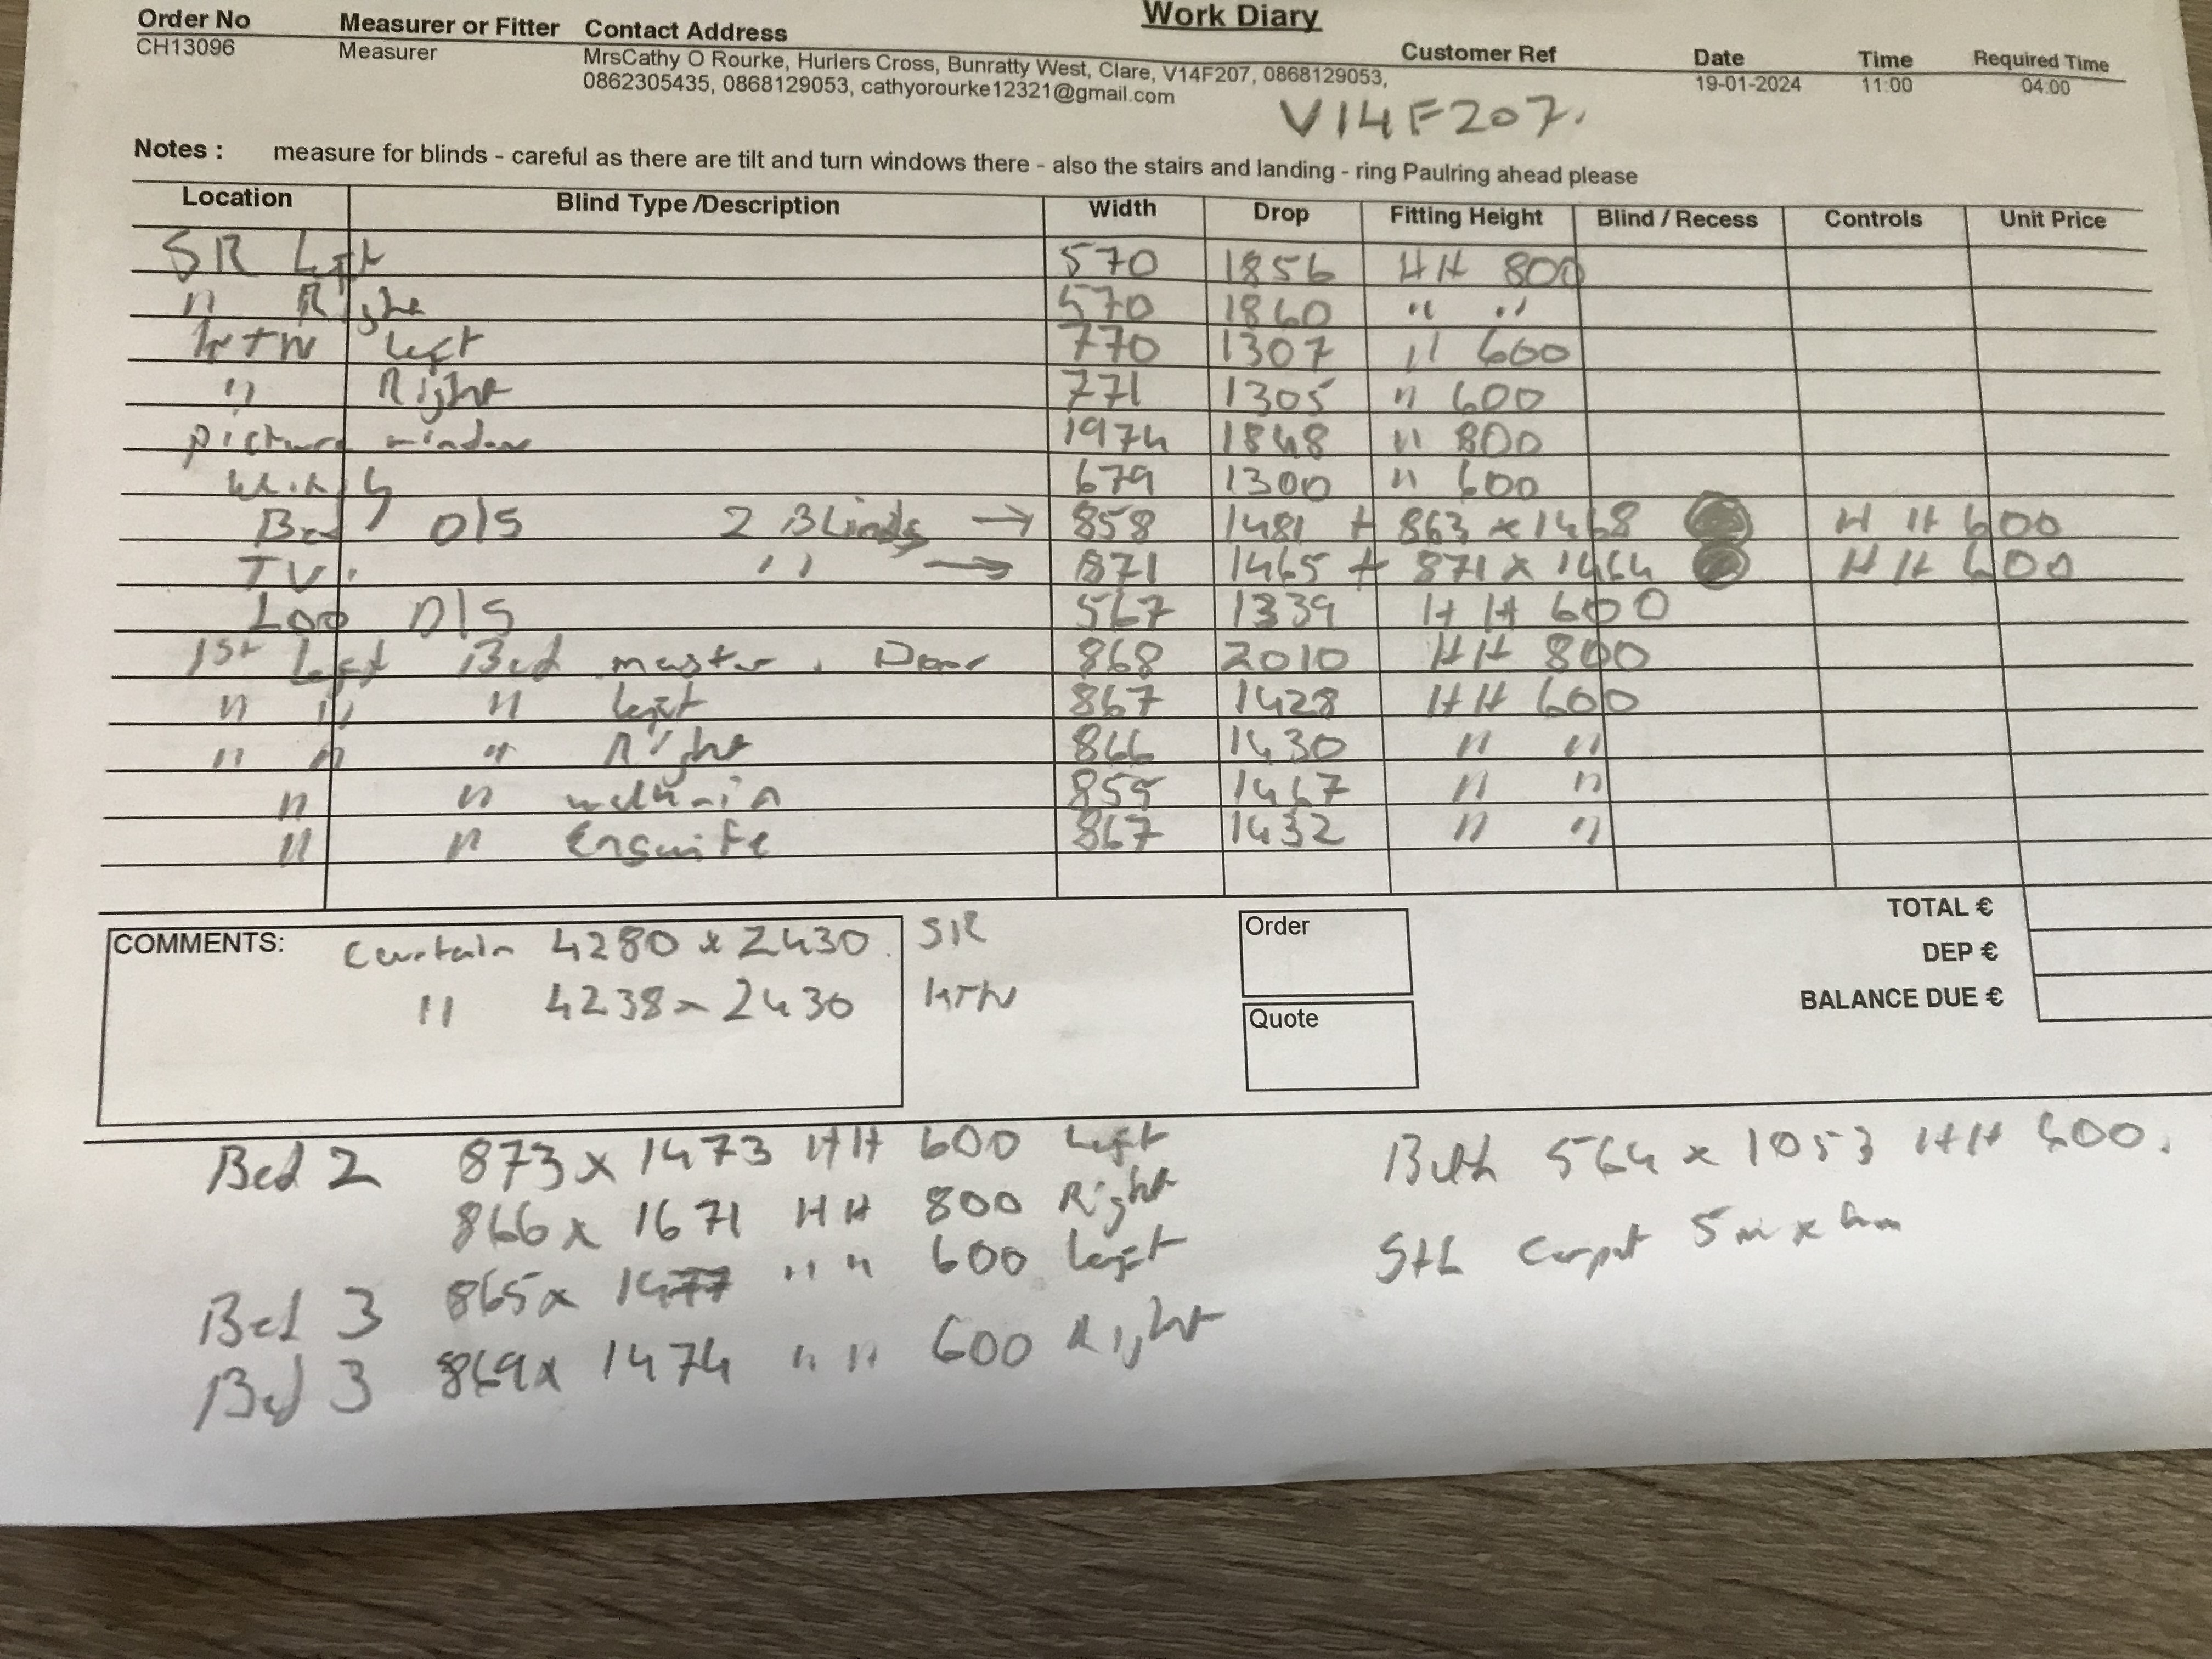 Work Diary
Order No Measurer or Fitter Contact Address Customer Ref Date Time Required Time
CH13096 Measurer MrsCathy O Rourke, Hurlers Cross, Bunratty West, Clare, V14F207, 0868129053, 19-01-2024 11:00 04:00
0862305435, 0868129053, cathyorourke12321@gmail.com
V14F207.
Notes : measure for blinds - careful as there are tilt and turn windows there - also the stairs and landing - ring Paulring ahead please
Location Blind Type /Description Width Drop Fitting Height Blind / Recess Controls Unit Price
SR Left 570 1856 HH 800
" Right 570 1860 " "
KTN Left 770 1307 " 600
" Right 771 1305 " 600
picture window 1974 1848 " 800
679 1300 " 600
Bed D/S 2 Blinds → 858 1481 + 863 x 1468 HH 600
TV. " → 871 1465 + 871 x 1464 HH 600
Loo D/S 567 1339 HH 600
1st Left Bed master. Door 868 2010 HH 800
" " " Left 867 1428 HH 600
" " " Right 866 1430 " "
" " walk-in 859 1467 " "
" " Ensuite 867 1432 " "
TOTAL €
DEP €
BALANCE DUE €
COMMENTS: Curtain 4280 x 2430. SR
" 4238 x 2430 KTN
Order
Quote
Bed 2 873 x 1473 HH 600 Left
866 x 1671 HH 800 Right
Bed 3 865 x 1477 " " 600 Left
Bed 3 869 x 1474 " " 600 Right
Bath 564 x 1053 HH 600.
S+L Carpet 5m x 4m